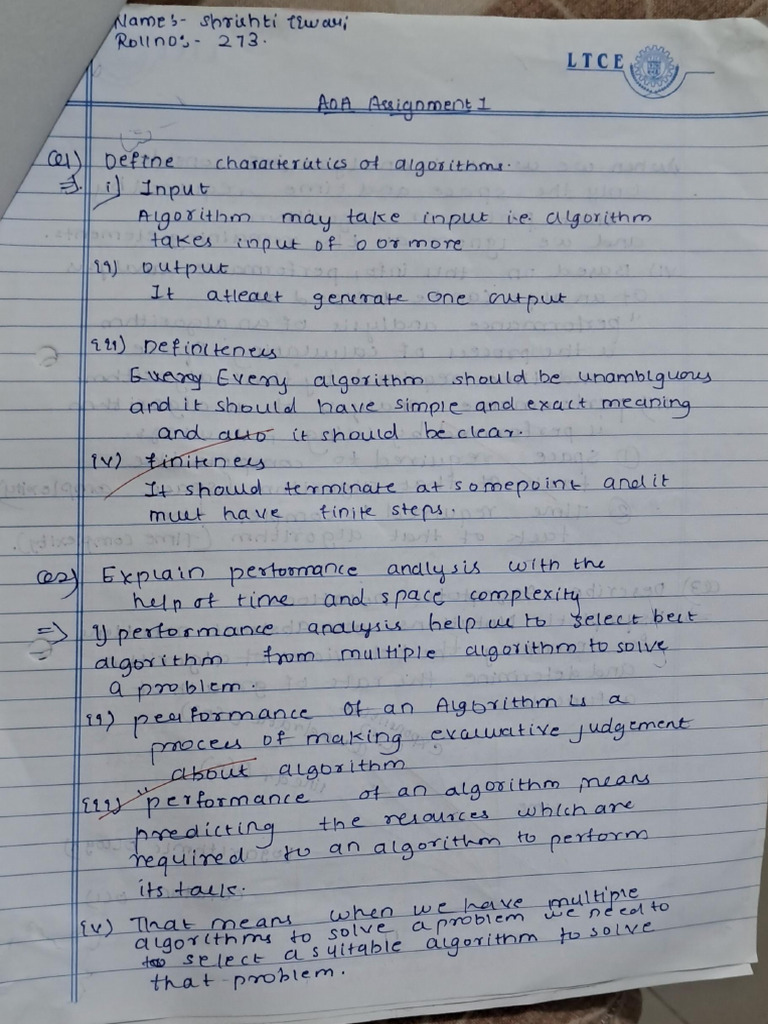 Name:- Shrishti Tiwari
Roll no:- 273.
LTCE
AOA Assignment 1
Q1) Define characteristics of algorithms.
=> i) Input
Algorithm may take input i.e. algorithm
takes input of 0 or more
ii) output
It atleast generate one output
iii) Definiteness
Every Every algorithm should be unambiguous
and it should have simple and exact meaning
and also it should be clear.
iv) finiteness
It should terminate at somepoint and it
must have finite steps.
Q2) Explain performance analysis with the
help of time and space complexity
=> i) performance analysis help us to select best
algorithm from multiple algorithm to solve
a problem.
ii) performance of an Algorithm is a
process of making evaluative judgement
about algorithm
iii) "performance of an algorithm means
predicting the resources which are
required to an algorithm to perform
its task.
iv) That means when we have multiple
algorithms to solve a problem we need to
to select a suitable algorithm to solve
that problem.